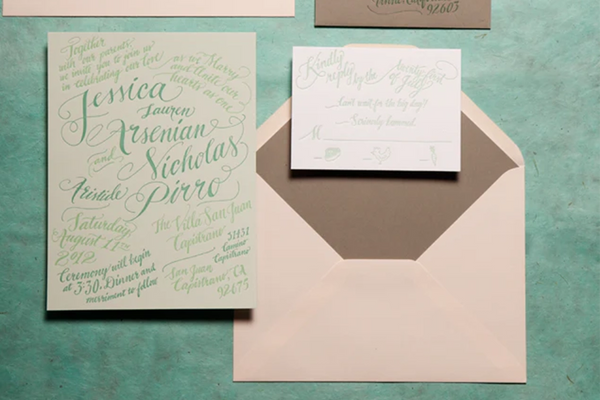 Together
with our parents,
we invite you to join us
in celebrating our love
as we Marry
and Unite our
hearts as one.
Jessica
Lauren
Arsenian
and
Nicholas
Aristide
Pirro
Saturday
August 11th
2012
The Villa San Juan
Capistrano
31431
Camino
Capistrano
San Juan
Capistrano, CA
92675
Ceremony will begin
at 3:30. Dinner and
merriment to follow
Kindly
reply by the
of July
Can't wait for the big day!
Seriously bummed.
M
92603